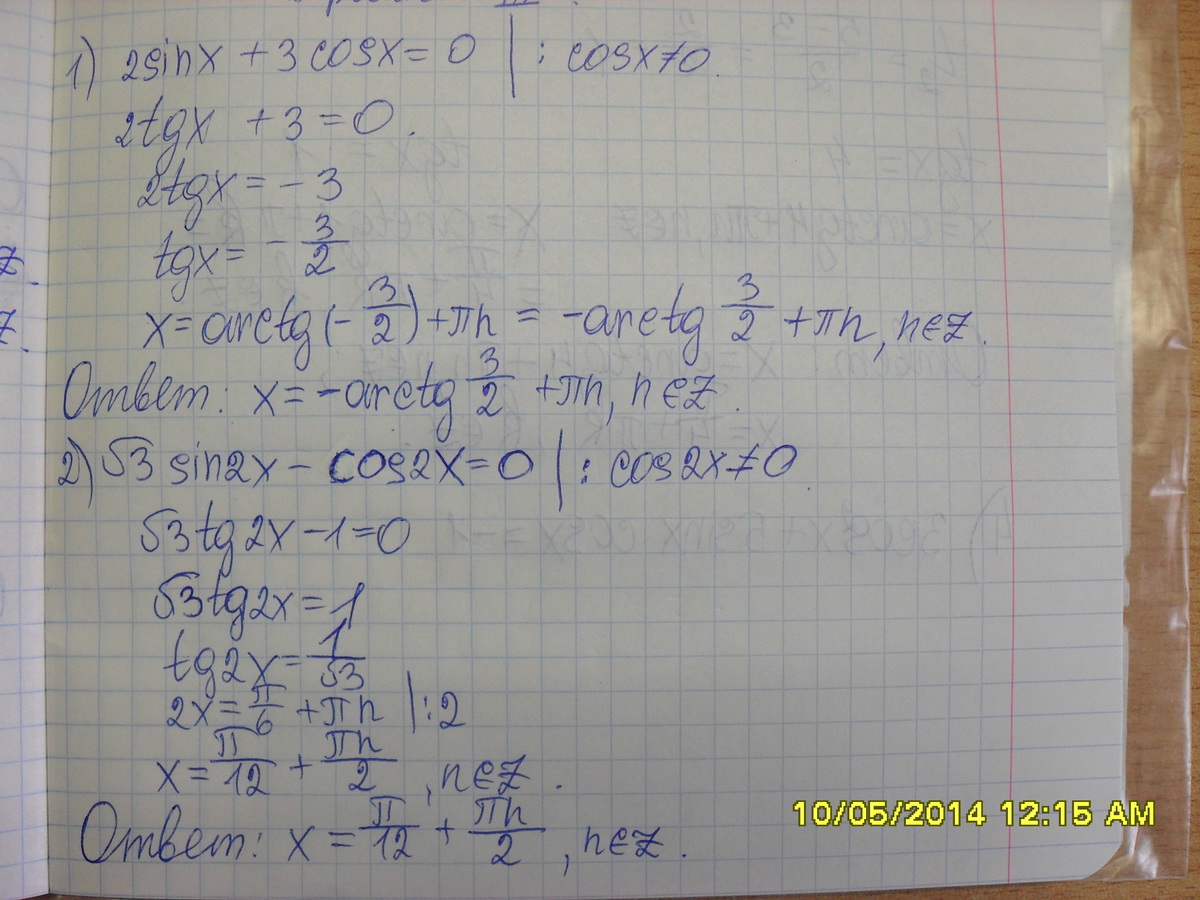 1) 2sinx + 3cosx = 0 | : cosx≠0.
2tgx + 3 = 0.
2tgx = -3
tgx = -3/2
x = arctg(-3/2) + πn = -arctg 3/2 + πn, n∈Z.
Ответ: x = -arctg 3/2 + πn, n∈Z.
2) √3 sin2x - cos2x = 0 | : cos2x≠0.
√3tg2x - 1 = 0
√3tg2x = 1
tg2x = 1/√3
2x = π/6 + πn | :2
x = π/12 + πn/2, n∈Z.
Ответ: x = π/12 + πn/2, n∈Z.
10/05/2014 12:15 AM